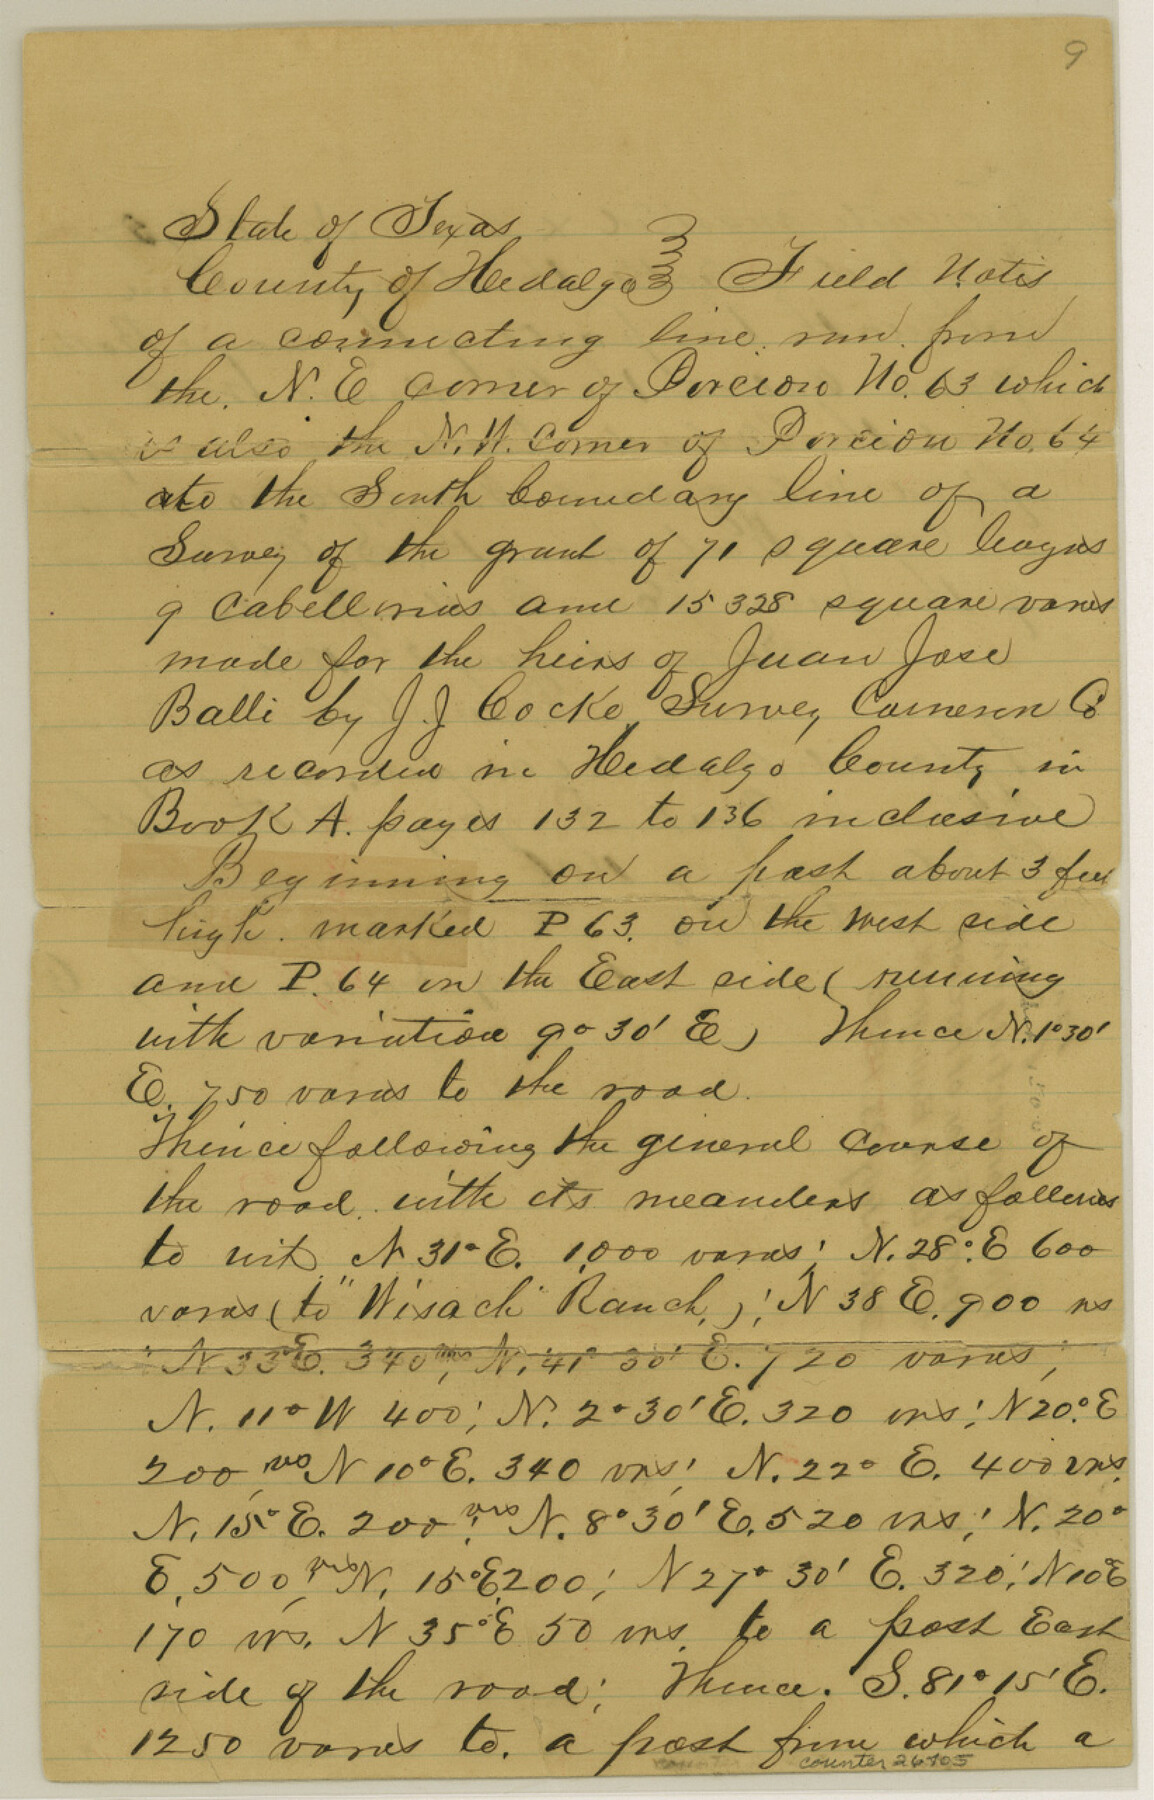 9
State of Texas
County of Hedalgo } Field Notes
of a connecting line run from
the. N. E corner of Porcion No. 63 which
is also the N. W. Corner of Porcion No. 64
to the South boundary line of a
Survey of the grant of 71 square leagues
9 Cabellerias and 15328 square varas
made for the heirs of Juan Jose
Balli by J. J Cocke, Survey, Cameron Co
as recorded in Hedalgo County in
Book A. pages 132 to 136 inclusive
Beginning on a post about 3 feet
high. marked P 63. on the West side
and P. 64 on the East side (running
with variation 9° 30' E) Thence N. 1° 30'
E. 750 varas to the road.
Thence following the general course of
the road with its meanders as follows
to wit N 31° E. 1,000 varas; N. 28° E 600
varas (to "Wisach" Ranch,); N 38 E. 900 vs
N 33° E. 340 vrs; N. 41° 30' E. 720 varas;
N. 11° W 400; N. 2° 30' E. 320 vrs; N 20° E
200 vrs N 10° E. 340 vrs; N. 22° E. 400 vrs.
N. 15° E. 200 vrs; N. 8° 30' E. 520 vrs; N. 20°
E. 500 vrs; N. 15° E 200; N 27° 30' E. 320; N 10° E
170 vrs. N 35° E 50 vrs. to a post East
side of the road; Thence. S. 81° 15' E.
1250 varas to. a post from which a
counter 26705